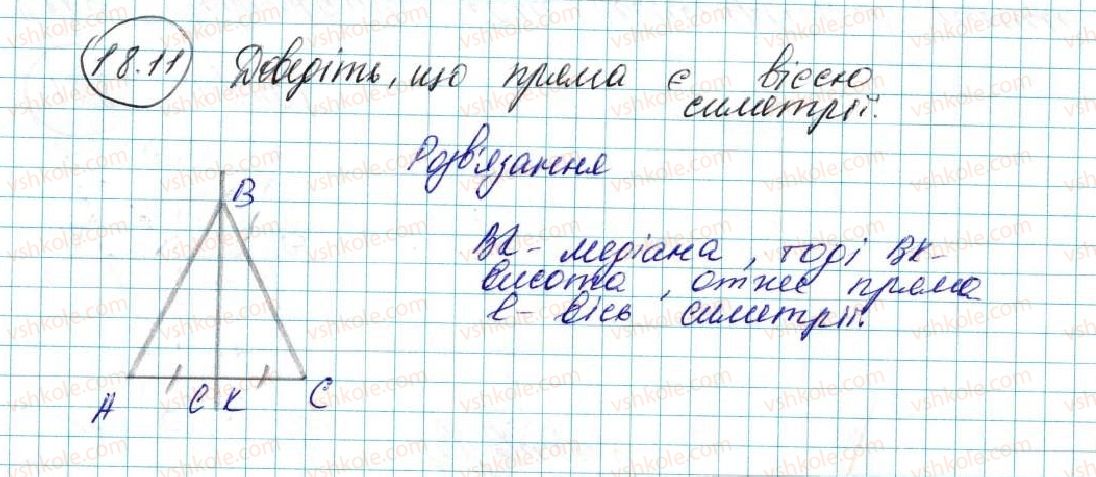 18.11 Доведіть, що пряма є віссю
симетрії.
Розв'язання
B
BK - медіана, тоді BK-
висота, отже пряма
l - вісь симетрії.
A l K C
vshkole.com